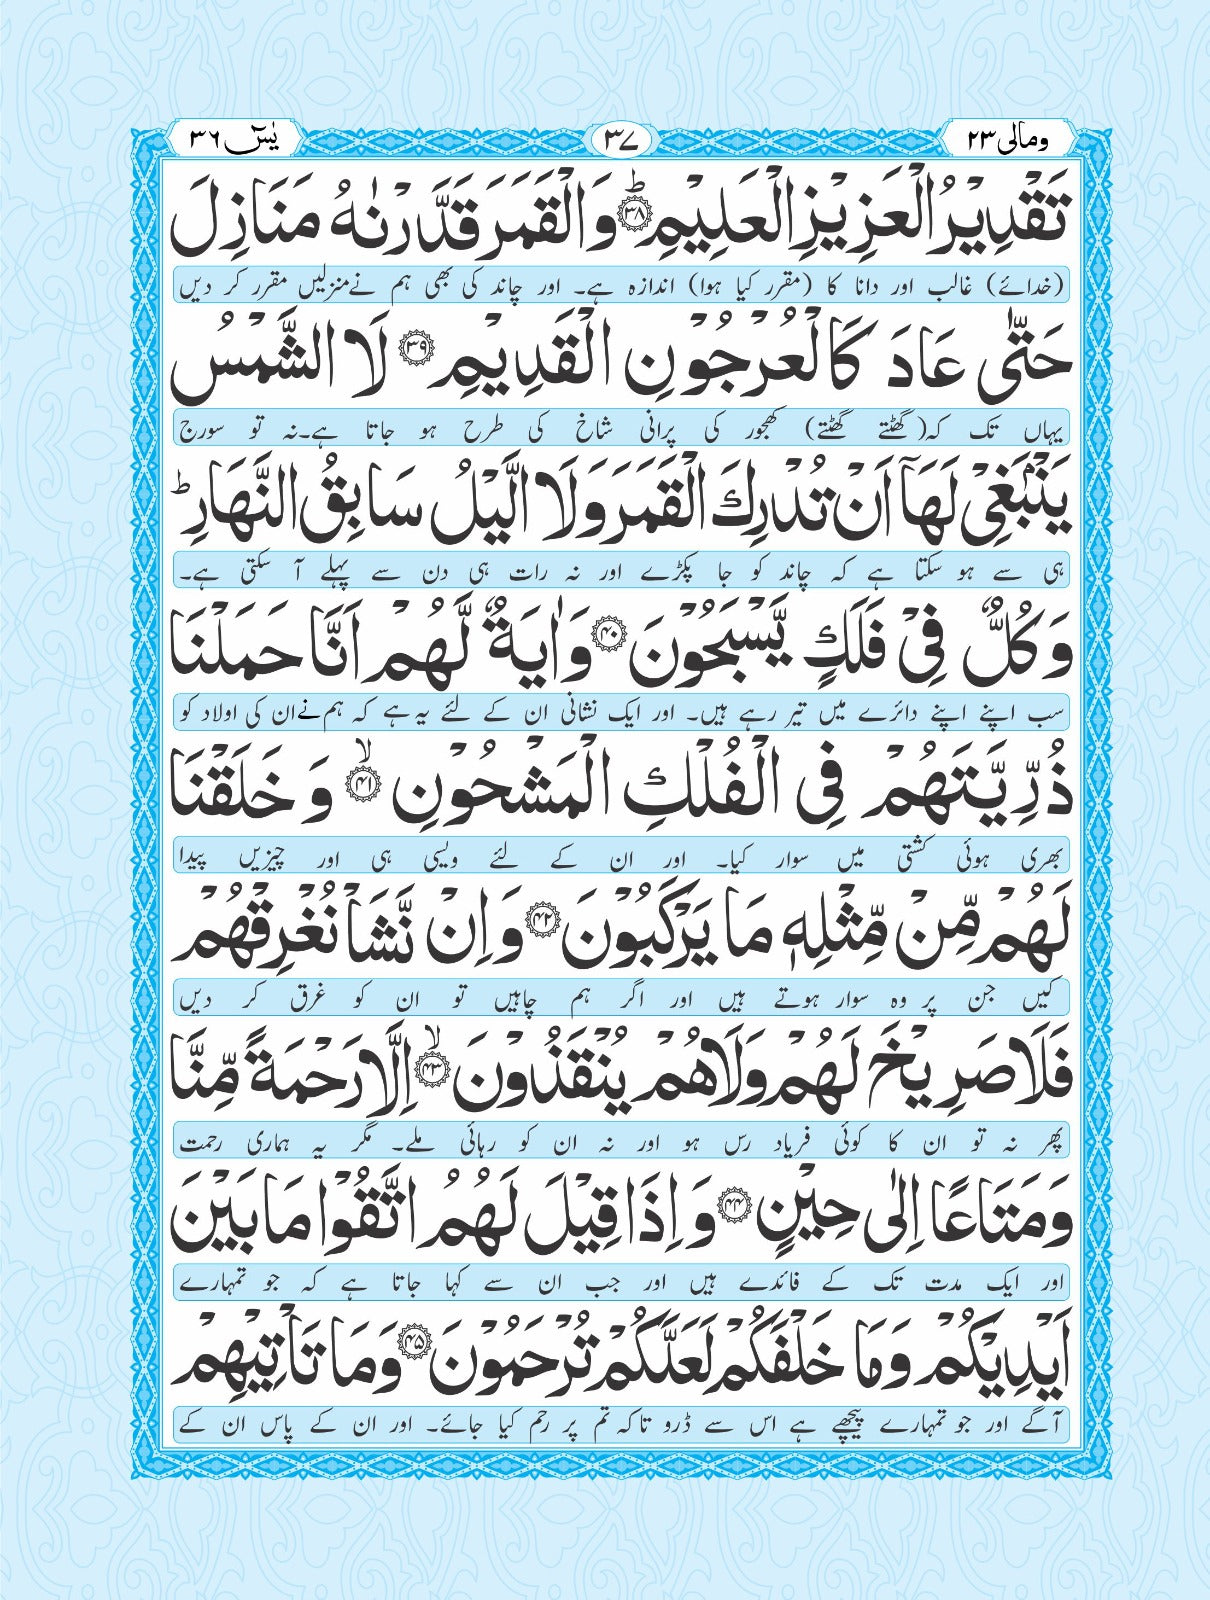 ومالی ۲۳
۳۷
یٰسٓ ۳۶
تَقْدِیْرُ الْعَزِیْزِ الْعَلِیْمِؕ ﴿۳۸﴾ وَالْقَمَرَ قَدَّرْنٰهُ مَنَازِلَ
(خدائے) غالب اور دانا کا (مقرر کیا ہوا) اندازہ ہے۔ اور چاند کی بھی ہم نے منزلیں مقرر کر دیں
حَتّٰی عَادَ كَالْعُرْجُوْنِ الْقَدِیْمِ ﴿۳۹﴾ لَا الشَّمْسُ
یہاں تک کہ (گھٹتے گھٹتے) کھجور کی پرانی شاخ کی طرح ہو جاتا ہے۔ نہ تو سورج
یَنْۢبَغِیْ لَهَاۤ اَنْ تُدْرِكَ الْقَمَرَ وَلَا الَّیْلُ سَابِقُ النَّهَارِؕ
ہی سے ہو سکتا ہے کہ چاند کو جا پکڑے اور نہ رات ہی دن سے پہلے آ سکتی ہے۔
وَكُلٌّ فِیْ فَلَكٍ یَّسْبَحُوْنَ ﴿۴۰﴾ وَاٰیَةٌ لَّهُمْ اَنَّا حَمَلْنَا
سب اپنے اپنے دائرے میں تیر رہے ہیں۔ اور ایک نشانی ان کے لئے یہ ہے کہ ہم نے ان کی اولاد کو
ذُرِّیَّتَهُمْ فِی الْفُلْكِ الْمَشْحُوْنِۙ ﴿۴۱﴾ وَخَلَقْنَا
بھری ہوئی کشتی میں سوار کیا۔ اور ان کے لئے ویسی ہی اور چیزیں پیدا
لَهُمْ مِّنْ مِّثْلِهٖ مَا یَرْكَبُوْنَ ﴿۴۲﴾ وَاِنْ نَّشَاْ نُغْرِقْهُمْ
کیں جن پر وہ سوار ہوتے ہیں اور اگر ہم چاہیں تو ان کو غرق کر دیں
فَلَا صَرِیْخَ لَهُمْ وَلَا هُمْ یُنْقَذُوْنَۙ ﴿۴۳﴾ اِلَّا رَحْمَةً مِّنَّا
پھر نہ تو ان کا کوئی فریاد رس ہو اور نہ ان کو رہائی ملے۔ مگر یہ ہماری رحمت
وَمَتَاعًا اِلٰی حِیْنٍ ﴿۴۴﴾ وَاِذَا قِیْلَ لَهُمُ اتَّقُوْا مَا بَیْنَ
اور ایک مدت تک کے فائدے ہیں اور جب ان سے کہا جاتا ہے کہ جو تمہارے
اَیْدِیْكُمْ وَمَا خَلْفَكُمْ لَعَلَّكُمْ تُرْحَمُوْنَ ﴿۴۵﴾ وَمَا تَاْتِیْهِمْ
آگے اور جو تمہارے پیچھے ہے اس سے ڈرو تاکہ تم پر رحم کیا جائے۔ اور ان کے پاس ان کے